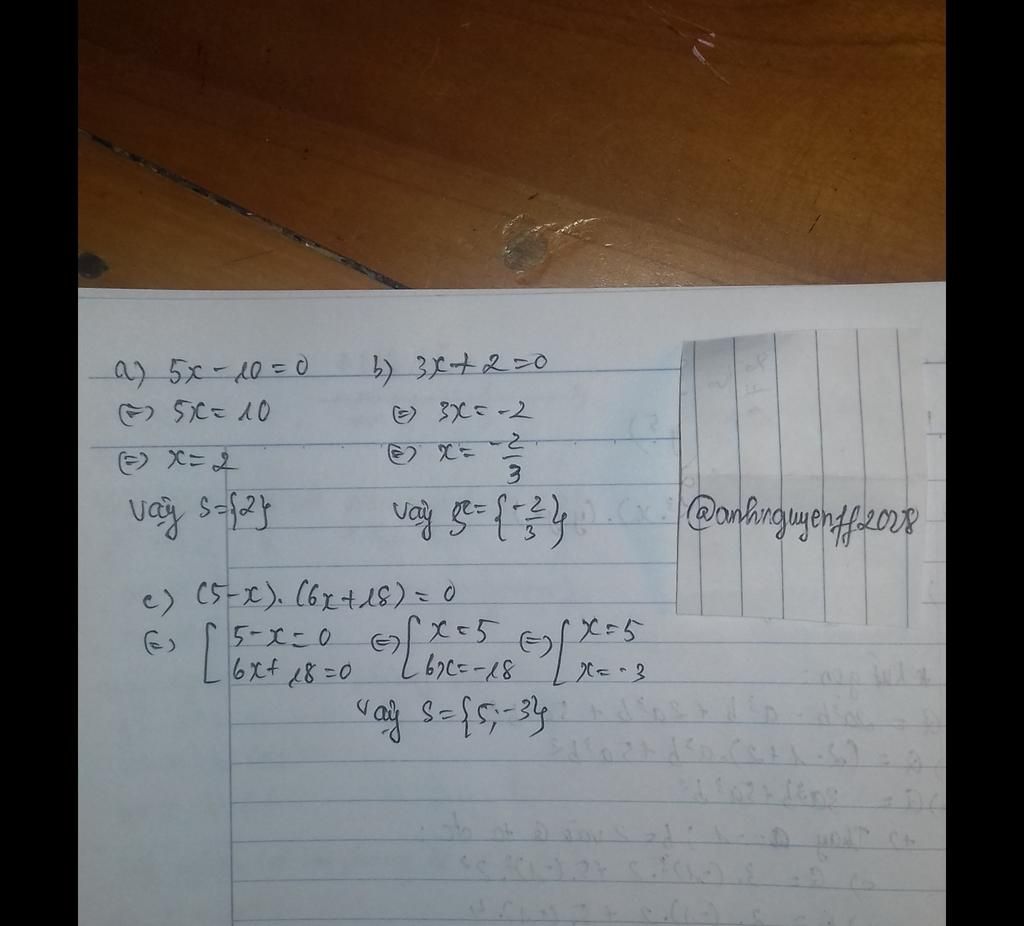 a) 5x - 10 = 0
⇔ 5x = 10
⇔ x = 2
Vậy S = {2}
b) 3x + 2 = 0
⇔ 3x = -2
⇔ x = -2/3
Vậy S = {-2/3}
@anhnguyenff2028
c) (5-x).(6x+18) = 0
⇔ [ 5-x=0 ⇔ [ x=5 ⇔ [ x=5
6x+18=0 6x=-18 x=-3
Vậy S = {5;-3}